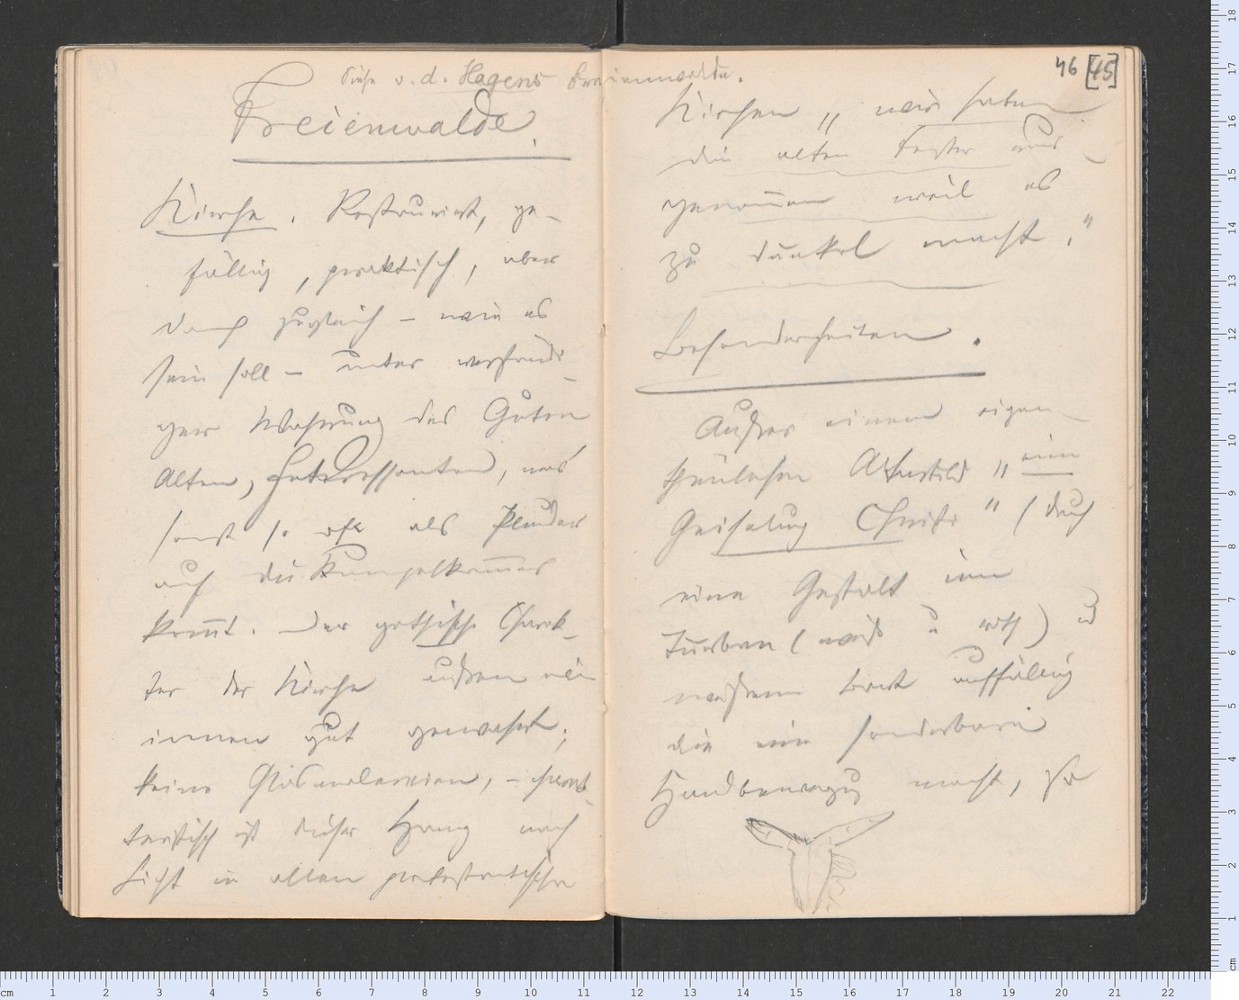 Siehe v. d. Hagens Freienwalde.
Freienwalde.
Kirche. Restaurirt, ge-
fällig, praktisch, aber
doch zugleich – wie es
sein soll – unter verständi-
ger Wahrung des Guten
Alten, Interessanten, was
sonst so oft als Plunder
auf die Rumpelkammer
kommt. Der gothische Charak-
ter der Kirche außen wie
innen gut gewahrt;
keine Glasmalereien, – charak-
teristisch ist dieser Hang nach
Licht in allen protestantischen
46 [45]
Kirchen „wir haben
die alten Fenster aus-
genommen weil es
zu dunkel macht."
Besonderheiten.
Außer einem eigen-
thümlichen Altarbild „eine
Geißelung Christi" (durch
eine Gestalt im
Turban (weiß u roth) u
weißem Bart auffällig
die eine sonderbare
Handbewegung macht, so